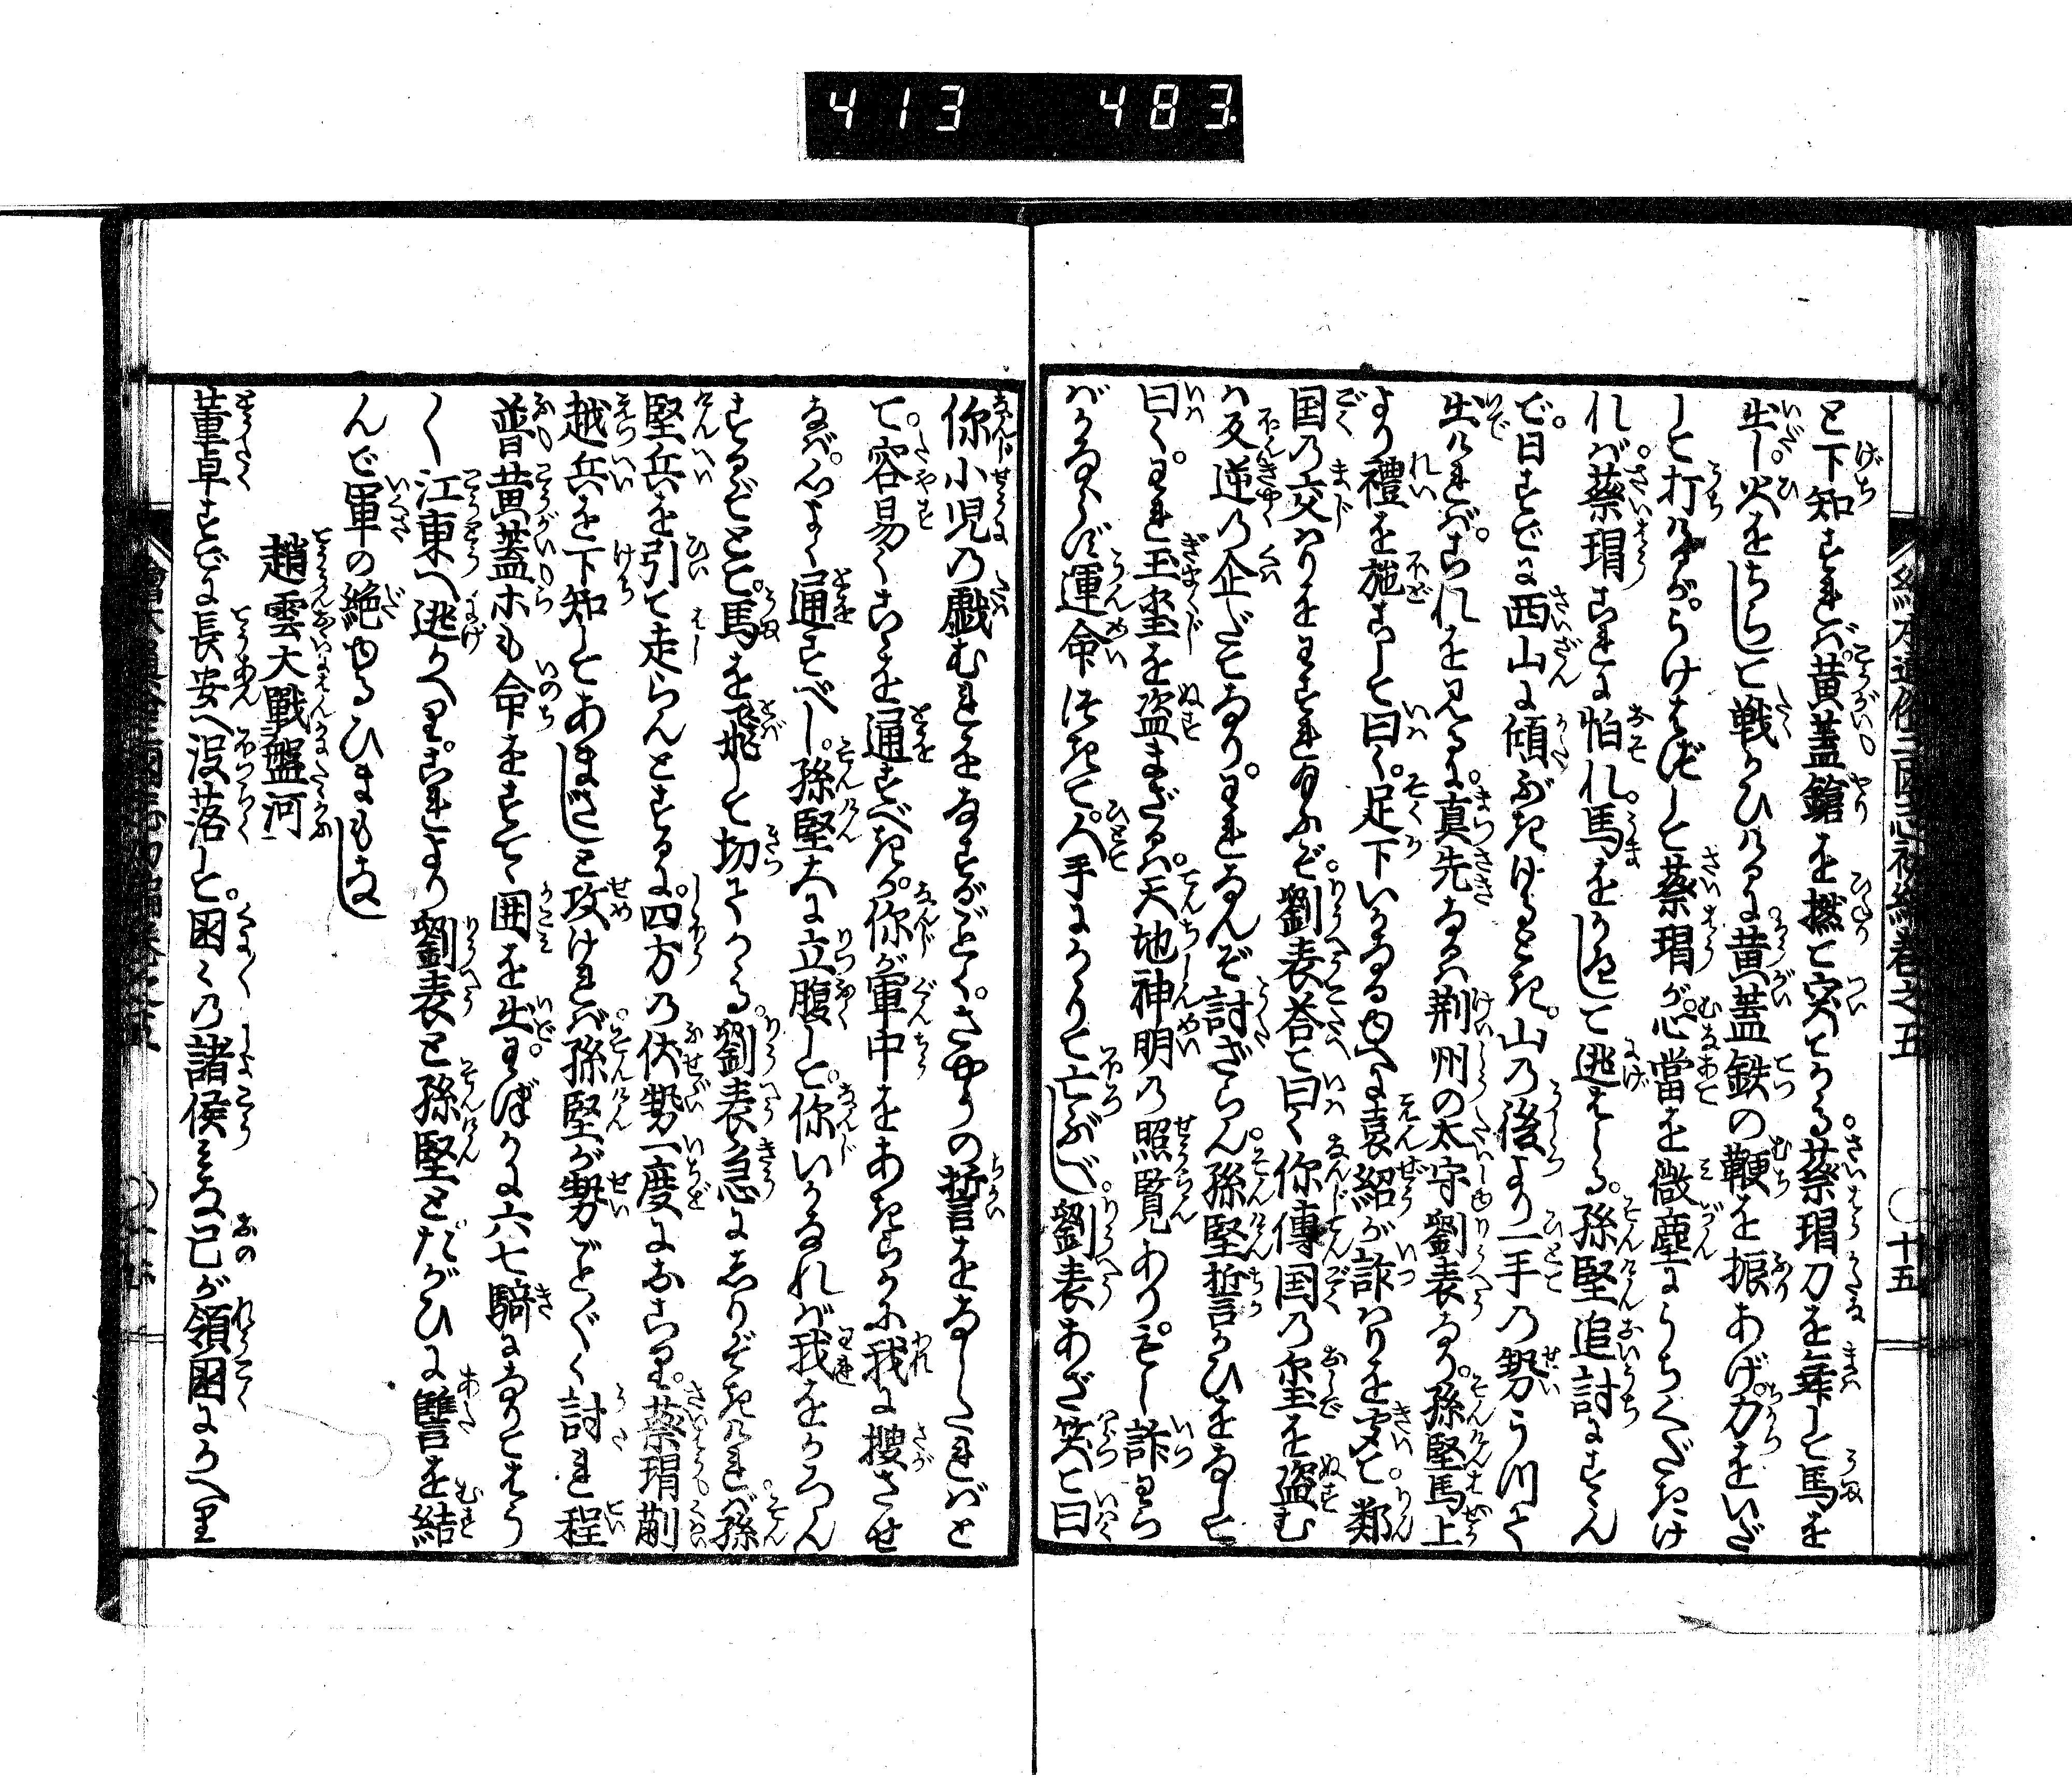 413 483
絵本通俗三国志初編巻之五 〇十五
と下知すれば。黄蓋鎗を撚て突てかゝる。蔡瑁刀を舞して馬を
出し。火をちらして戦ひけるに。黄蓋鉄の鞭を振あげ。力をいだ
して打けるが。うけはづして蔡瑁が。心當を微塵にうちくだきけ
れば。蔡瑁これに怕れ。馬をかへして逃はしる。孫堅追討にすゝん
で。日すでに西山に傾ぶきけるとき。山の後より一手の勢うつて
出ければ。これをみるに。真先なるハ荊州の太守劉表なり。孫堅馬上
より禮を施こして曰く。足下いかなるゆへに袁紹が詐ハりを受て。鄰
国の交ハりをわすれ給ふぞ。劉表答て曰く你傳国の璽を盗む
ハ反逆の企だてなり。われなんぞ討ざらん。孫堅誓ひをなして
曰く。われ玉璽を盗まざるハ。天地神明の照覧あり。もし詐ら
バかならず運命つきて。人手にかゝりて亡ぶべし。劉表あざ笑て曰
你小児の戯むれをなすがごとく。さやうの誓をなしたればと
て。容易くこゝを通すべきか。你が軍中をあきらかに我に捜させ
なば。心よく通すべし。孫堅大に立腹して。你いかなれば我をかろん
ずるぞとて。馬を飛して切てかゝる。劉表急にしりぞきければ。孫
堅兵を引て走らんとするに。四方の伏勢一度におこり。蔡瑁蒯
越兵を下知してあまさじと攻ければ。孫堅が勢ごとごとく討れ程
普黄蓋ホも命をすて。囲を出。わづかに六七騎になりてはう
〱江東へ逃かへり。これより劉表と孫堅とたがひに讐を結
んで軍の絶ゆるひまもなし
趙雲大戰盤河
董卓すでに長安へ没落して。国々の諸侯みな己が領国にかへり